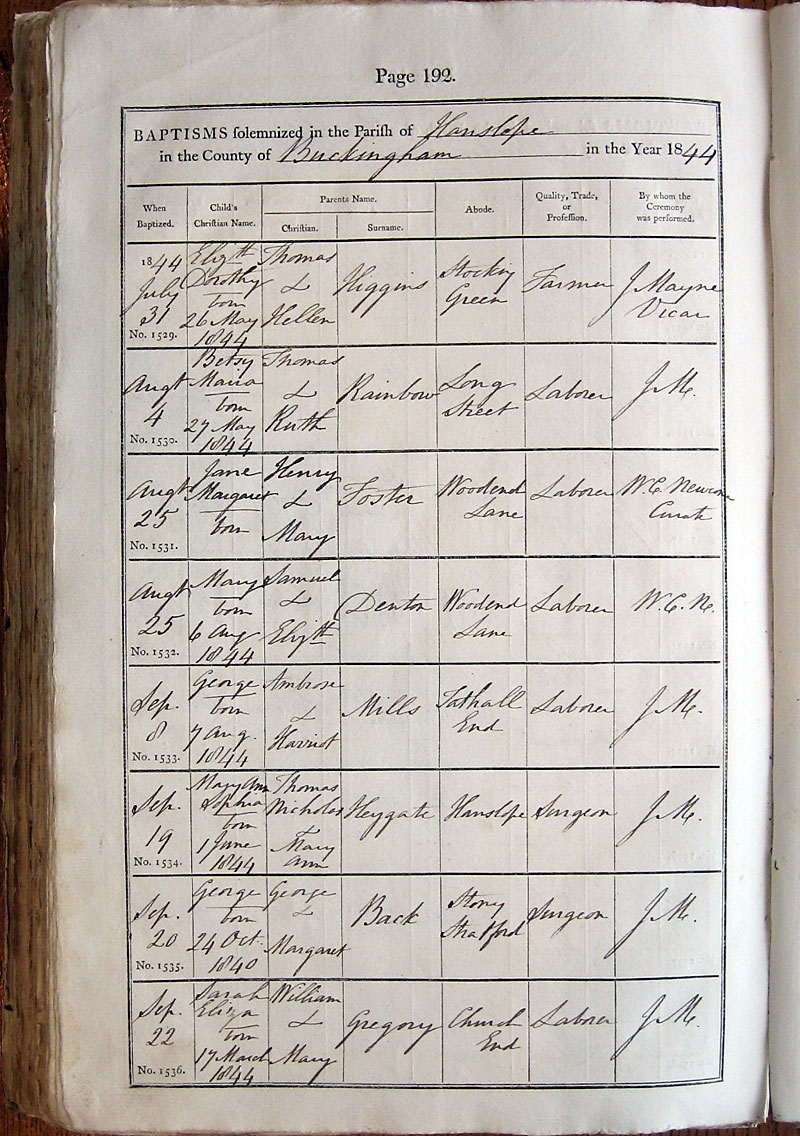 Page 192.
BAPTISMS solemnized in the Parish of Hanslope
in the County of Buckingham in the Year 1844
When Baptized.
Child's Christian Name.
Parents Name.
Christian.
Surname.
Abode.
Quality, Trade, or Profession.
By whom the Ceremony was performed.
1844
July
31
No. 1529.
Elizth
Dorothy
born
26 May
1844
Thomas
&
Hellen
Higgins
Stocking
Green
Farmer
J Mayne
Vicar
Augt
4
No. 1530.
Betsy
Maria
born
27 May
1844
Thomas
&
Ruth
Rainbow
Long
Street
Laborer
J M.
Augt
25
No. 1531.
Jane
Margaret
born
Henry
&
Mary
Foster
Woodend
Lane
Laborer
W. C. Newcome
Curate
Augt
25
No. 1532.
Mary
born
6 Aug
1844
Samuel
&
Elizth
Denton
Woodend
Lane
Laborer
W. C. N.
Sep.
8
No. 1533.
George
born
7 Aug.
1844
Ambrose
&
Harriot
Mills
Tathall
End
Laborer
J M.
Sep.
19
No. 1534.
Mary Ann
Sophia
born
1 June
1844
Thomas
Nicholas
Mary
Ann
Heygate
Hanslope
Surgeon
J M.
Sep.
20
No. 1535.
George
born
24 Oct.
1840
George
&
Margaret
Back
Stony
Stratford
Surgeon
J M.
Sep.
22
No. 1536.
Sarah
Eliza
born
17 March
1844
William
&
Mary
Gregory
Church
End
Laborer
J M.